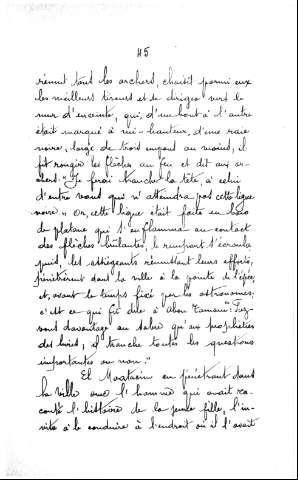 45
réunit tout les archers, choisit parmi eux
les meilleurs tireurs et se dirigea vers le
mur d'enceinte, qui, d'un bout à l'autre
était marqué à mi-hauteur, d'une raie
noire, large de trois empans au moins, il
fit rougir les flèches au feu et dit aux ar-
chers: "Je ferai trancher la tête, à celui
d'entre vous qui n'atteindra pas cette ligne
noire." Or, cette ligne était faite en bois
de platane qui s'enflamma au contact
des flèches brûlantes, le rempart s'écroula
puis, les assiégeants réunissant leurs efforts,
pénétrèrent dans la ville à la pointe de l'épée,
et, avant le temps fixé par les astronomes;
c'est ce qui fit dire à Abou Tamam "Fiez-
vous davantage au sabre qu'aux prophéties
des livres, il tranche toutes les questions
importantes ou non."
El Moatacim en pénétrant dans
la ville avec l'homme qui avait ra-
conté l'histoire de la jeune fille, l'in-
vita à le conduire à l'endroit où il l'avait